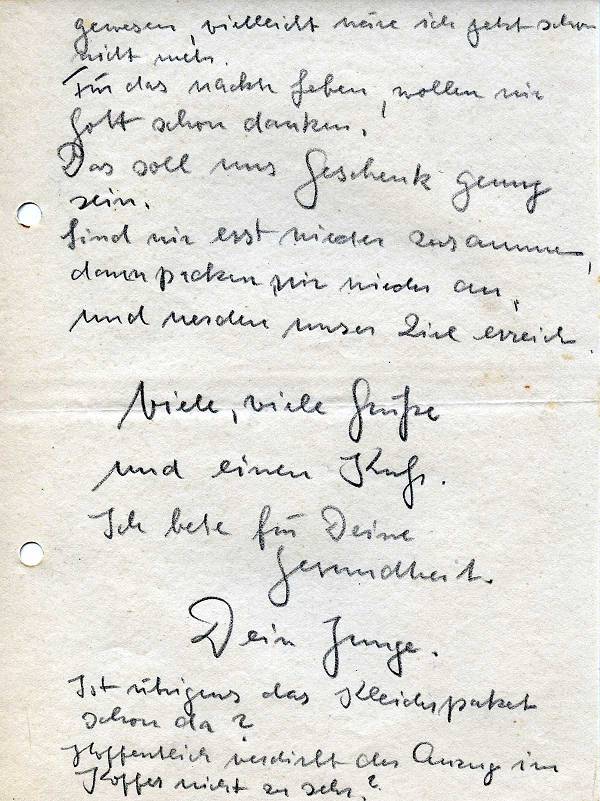 gewesen, vielleicht wäre ich jetzt schon
nicht mehr.
Für das nackte Leben, wollen wir
Gott schon danken.
Das soll uns Geschenk genug
sein.
Sind wir erst wieder zusammen,
dann packen wir wieder an,
und werden unser Ziel erreich
Viele, viele Grüße
und einen Kuß.
Ich bete für Deine
Gesundheit.
Dein Junge.
Ist übrigens das Kleiderpaket
schon da?
Hoffentlich verdirbt der Anzug im
Koffer nicht zu sehr.?